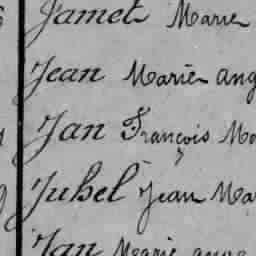 Jamet Marie
Jean Marie ang
Jan François Ma
Juhel Jean Mar
Jan Marie ange